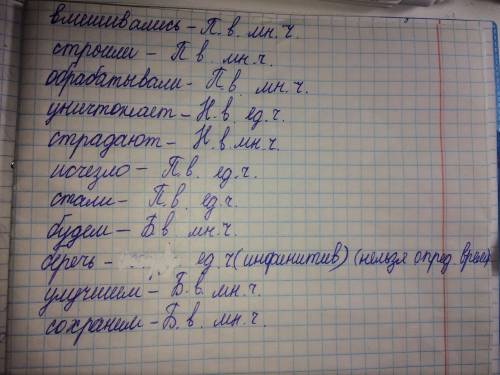 вмешивались – П.в. мн.ч.
строили – П.в. мн.ч.
обрабатывали – П.в. мн.ч.
уничтожает – Н.в. ед.ч.
страдают – Н.в. мн.ч.
исчезло – П.в. ед.ч.
стали – П.в. ед.ч.
будем – Б.в мн.ч.
беречь – ед.ч (инфинитив) (нельзя опред. время)
улучшаем – Б.в. мн.ч.
сохраним – Б.в. мн.ч.